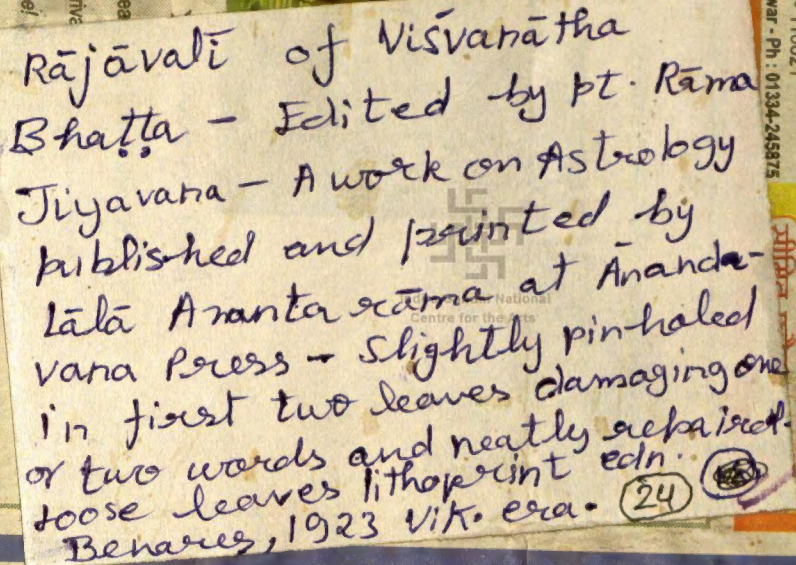 Rājāvalī of Viśvanātha
Bhaṭṭa – Edited by pt. Rāma
Jiyavana – A work on Astrology
published and printed by
Lālā Ananta rāma at Ānanda-
vana Press – Slightly pin-holed
in first two leaves damaging one
or two words and neatly repaired.
loose leaves lithoprint edn.
Benares, 1923 Vik. era. 24
National
Centre for the Arts
war - Ph : 01334-245875